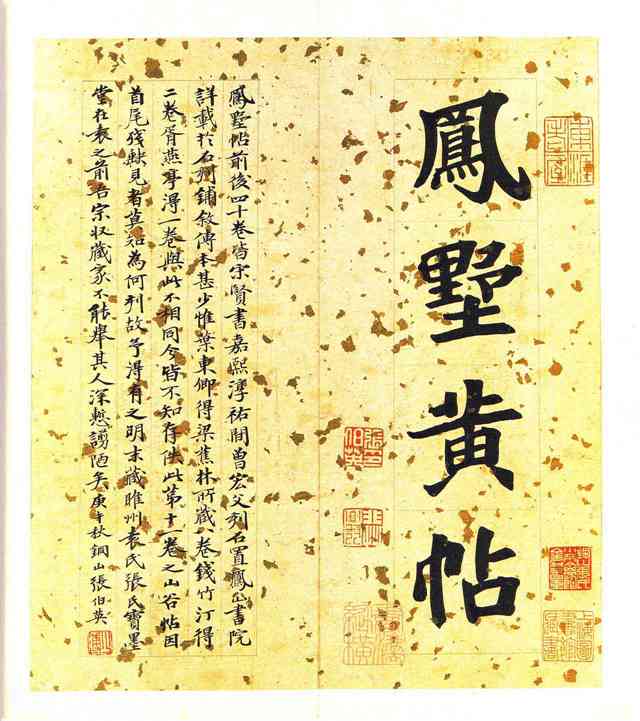 鳳墅黄帖
鳳墅帖前後四十卷皆宋賢書嘉熙淳祐間曾宏父刻石置鳳山書院
詳載於石刻鋪敘傳本甚少惟葉東卿得梁蕉林所藏八卷錢竹汀得
二卷胥燕亭得一卷與此不相同今皆不知存佚此第十一卷之山谷帖因
首尾殘缺見者莫知為何刻故予得有之明末藏睢州袁氏張氏寶墨
堂在袁之前吾宗收藏家不能舉其人深愧謭陋矣庚午秋銅山張伯英